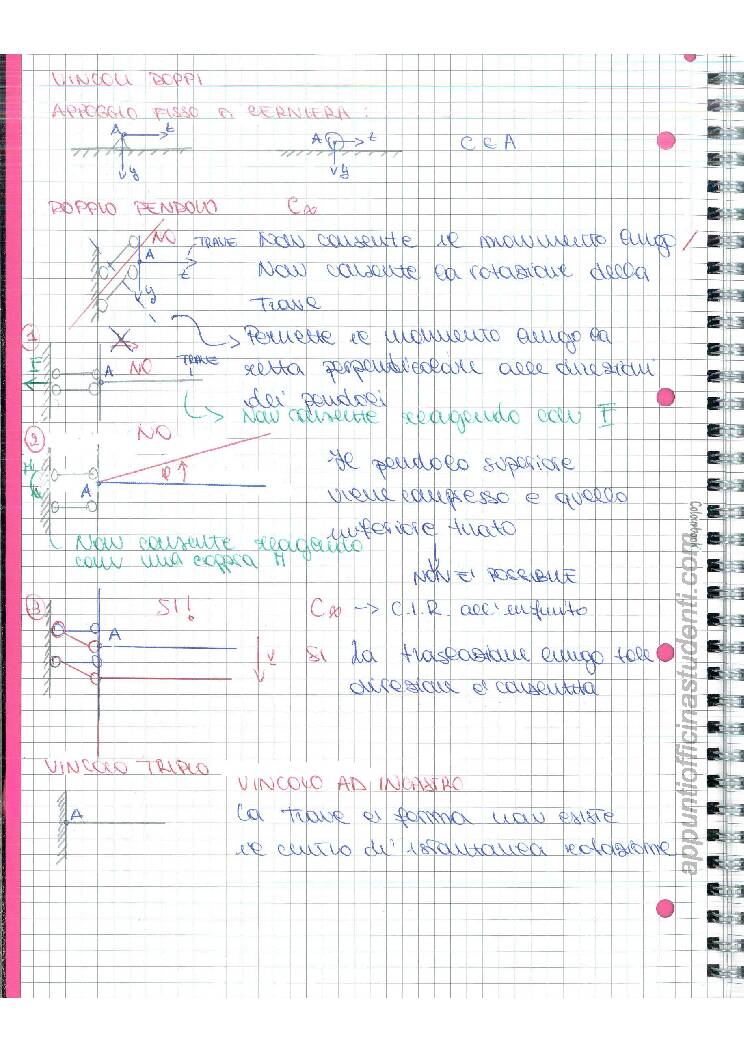 VINCOLI DOPPI
APPOGGIO FISSO O CERNIERA:
A t A t C ∈ A
y y
DOPPIO PENDOLO C∞
NO TRAVE Non consente il movimento lungo /
A t Non consente la rotazione della
y trave
1 Permette il movimento lungo la
NO TRAVE retta perpendicolare alle direzioni
A dei pendoli
Non consente reagendo con F
2 NO
Il pendolo superiore
φ
A viene compresso e quello
inferiore tirato
Non consente reagendo
con una coppia M
NON E' POSSIBILE
3 SI! C∞ → C.I.R. all'infinito
A
v SI La traslazione lungo tale
direzione è consentita
VINCOLO TRIPLO
VINCOLO AD INCASTRO
A La trave è ferma non esiste
il centro di istantanea rotazione
Colourbook
appuntiofficinastudenti.com